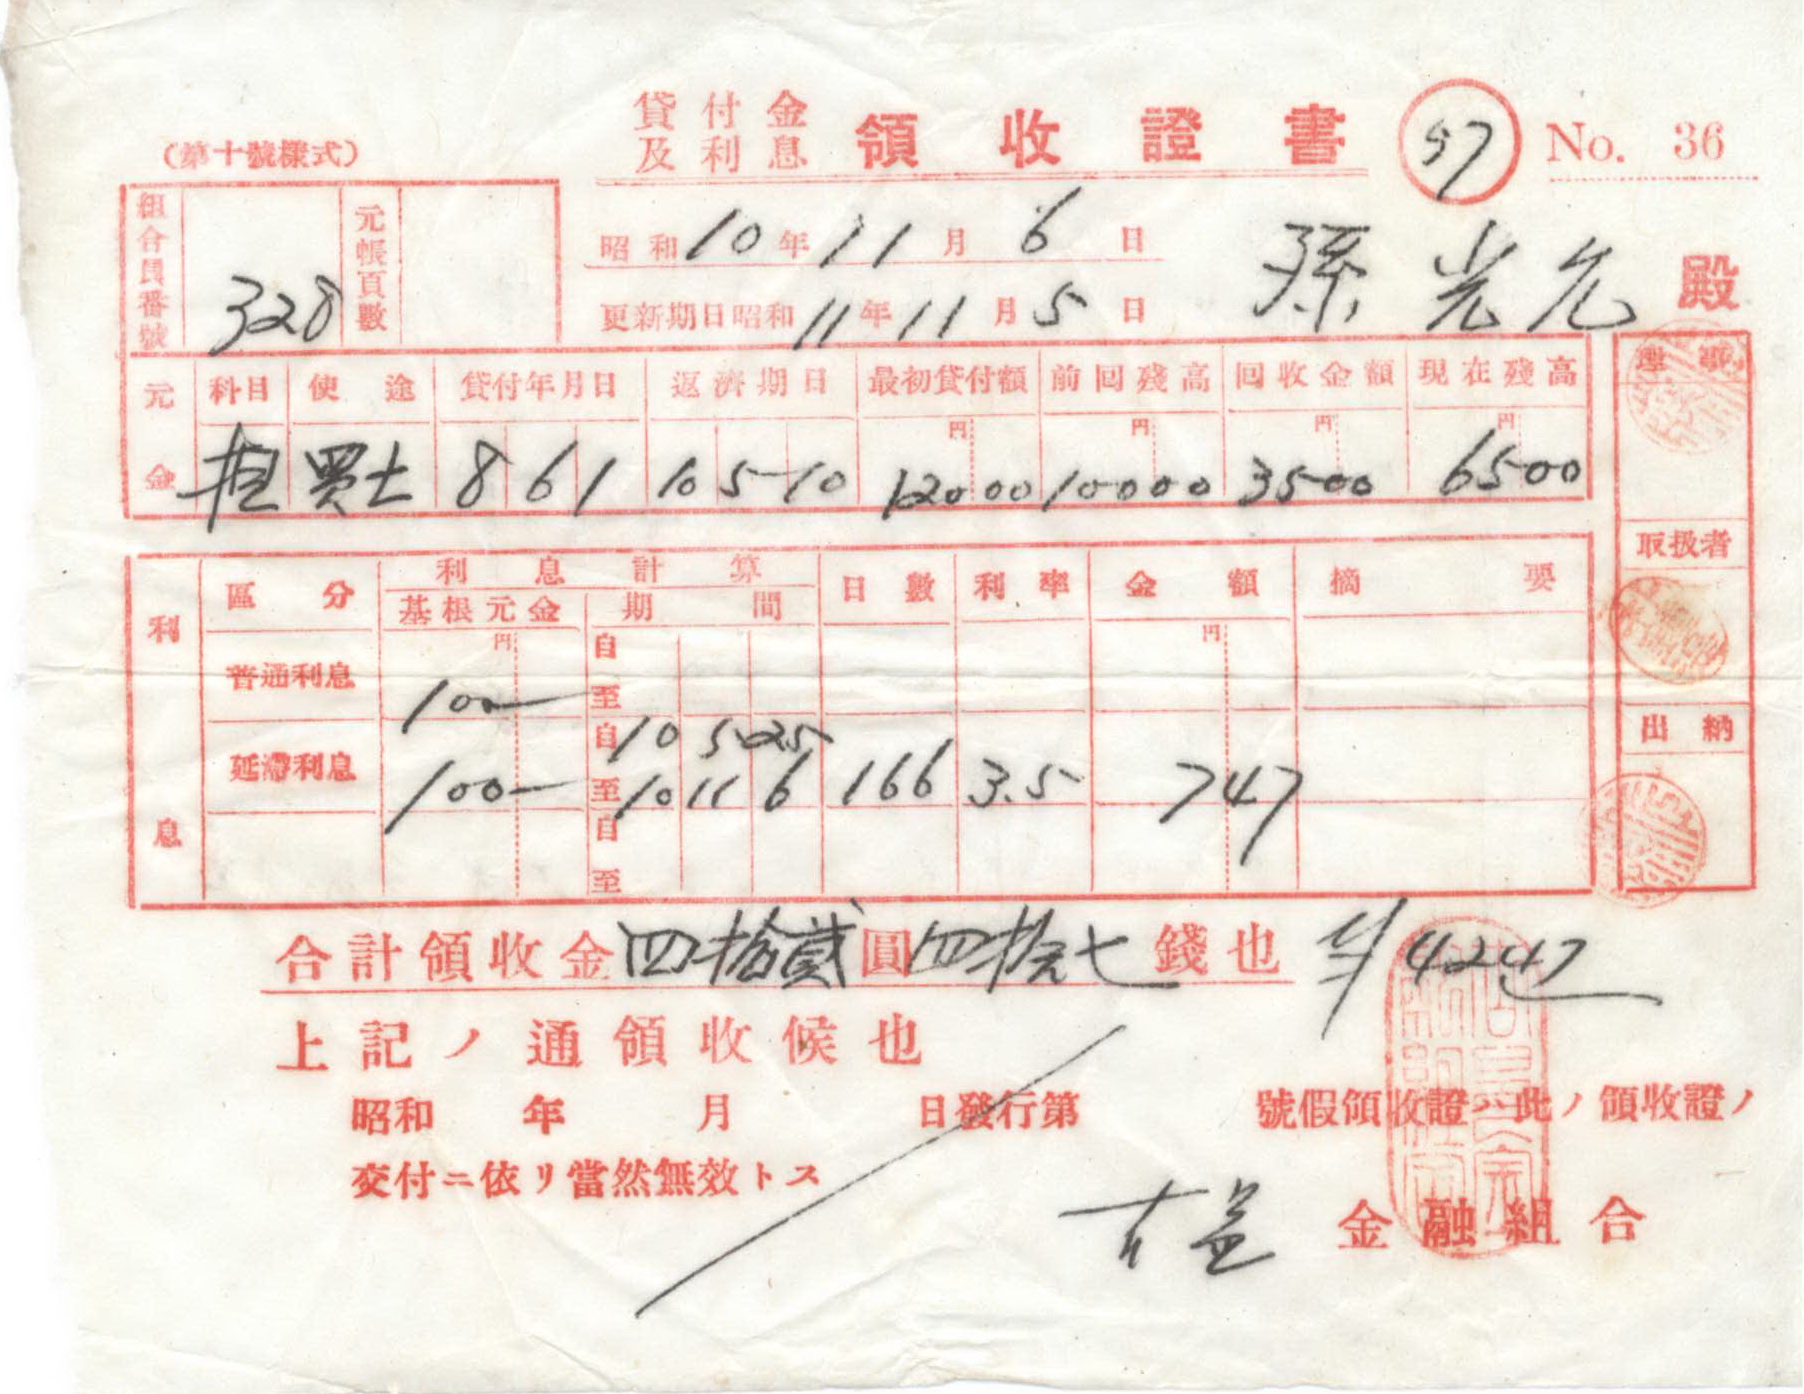 (第十號樣式)
貸付金及利息 領收證書 97 No. 36
組合員番號 328 元帳頁數
昭和10年11月6日
更新期日昭和11年11月5日
孫光允 殿
元金 科目 使途 貸付年月日 返濟期日 最初貸付額 前回殘高 回收金額 現在殘高
円 円 円 円
買土 8 6 1 10 5 10 12000 10000 3500 6500
利息 區分 利息計算 日數 利率 金額 摘要
基根元金 期間
円 円
普通利息 100— 自 至
延滯利息 100— 自 10 5 25 至 10 11 6 166 3.5 747
自 至
理事
取扱者
出納
合計領收金四拾貳圓四拾七錢也 4247
上記ノ通領收候也
昭和 年 月 日發行第 號假領收證ハ此ノ領收證ノ
交付ニ依リ當然無效トス
金融組合